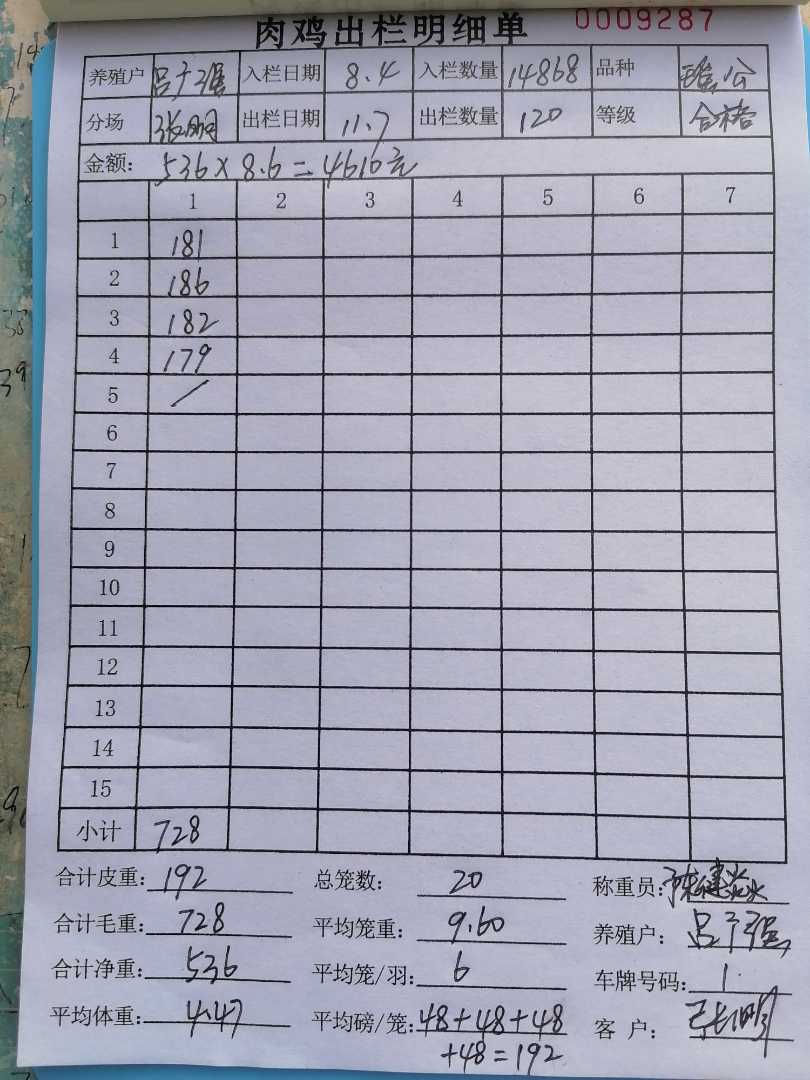 肉鸡出栏明细单 0009287
养殖户 吕广强 入栏日期 8.4 入栏数量 14868 品种 瑶公
分场 张明 出栏日期 11.7 出栏数量 120 等级 合格
金额: 536×8.6=4610元
1 2 3 4 5 6 7
1 181
2 186
3 182
4 179
5 /
6
7
8
9
10
11
12
13
14
15
小计 728
合计皮重: 192 总笼数: 20 称重员:
合计毛重: 728 平均笼重: 9.60 养殖户: 吕广强
合计净重: 536 平均笼/羽: 6 车牌号码: 1
平均体重: 4.47 平均磅/笼: 48+48+48 客 户: 张明
+48=192